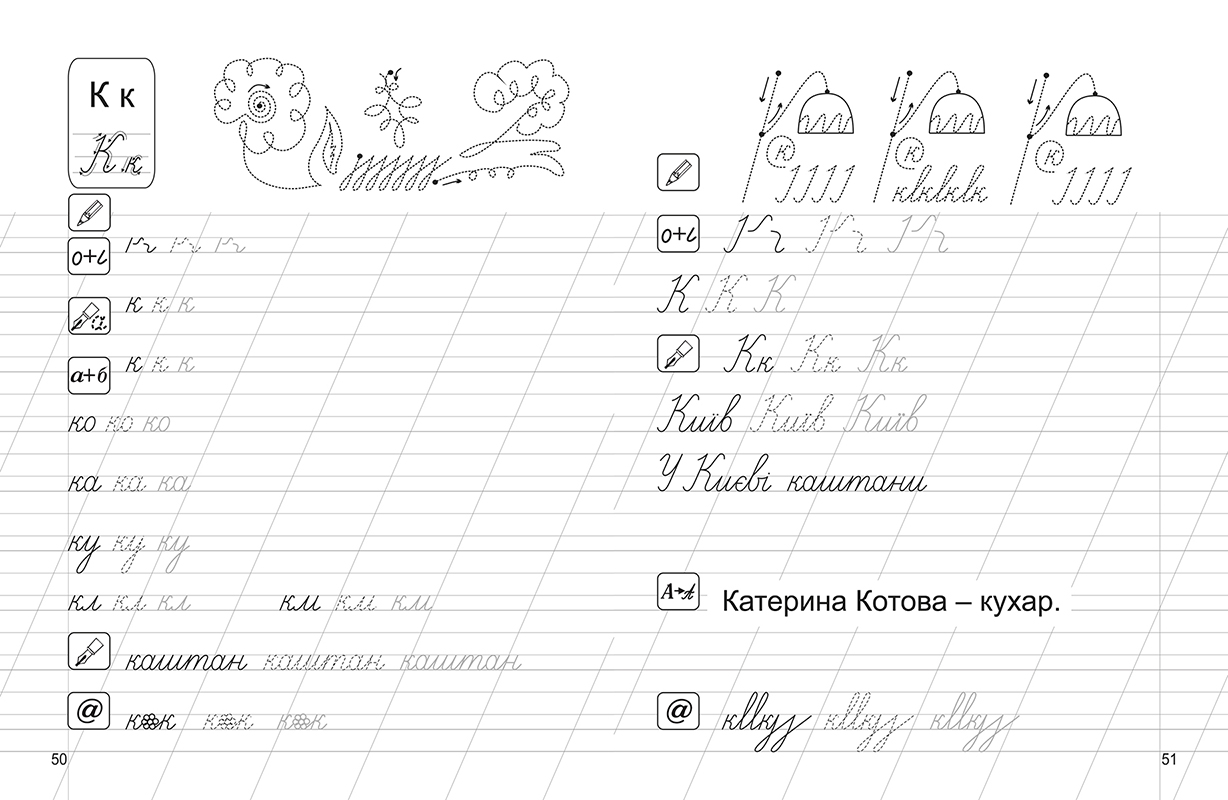 К к
К к
о+ι
к к к
а+б
к к к
ко ко ко
ка ка ка
ку ку ку
кл кл кл км км км
каштан каштан каштан
@
50
к к к
клклклк
о+ι
К К К
Кк Кк Кк
Київ Київ Київ
У Києві каштани
А→А
Катерина Котова – кухар.
@
51